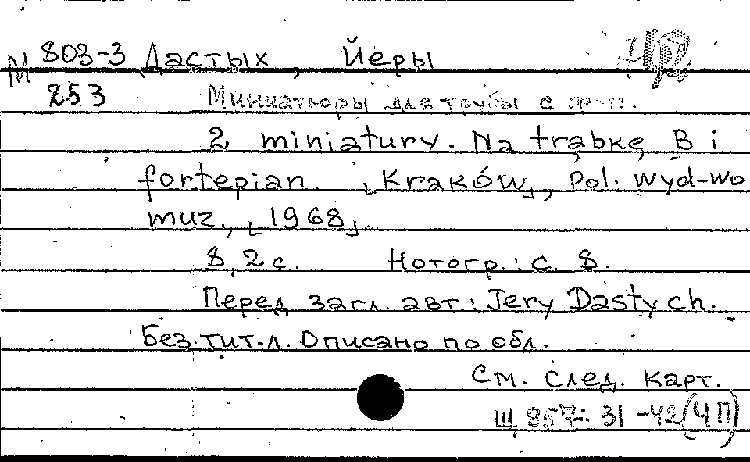 М 803-3 Дастых, Йеры ЧР
253 Миниатюры для трубы с ф-п.
2 miniatury. Na trąbkę B i
fortepian. [Kraków], Pol. wyd-wo
muz., [1968]
8, 2 с. Нотогр.: с. 8.
Перед загл. авт.: Jery Dastych.
Без тит. л. Описано по обл.
См. след. карт.
Щ 857: 31-42 (ЧП)